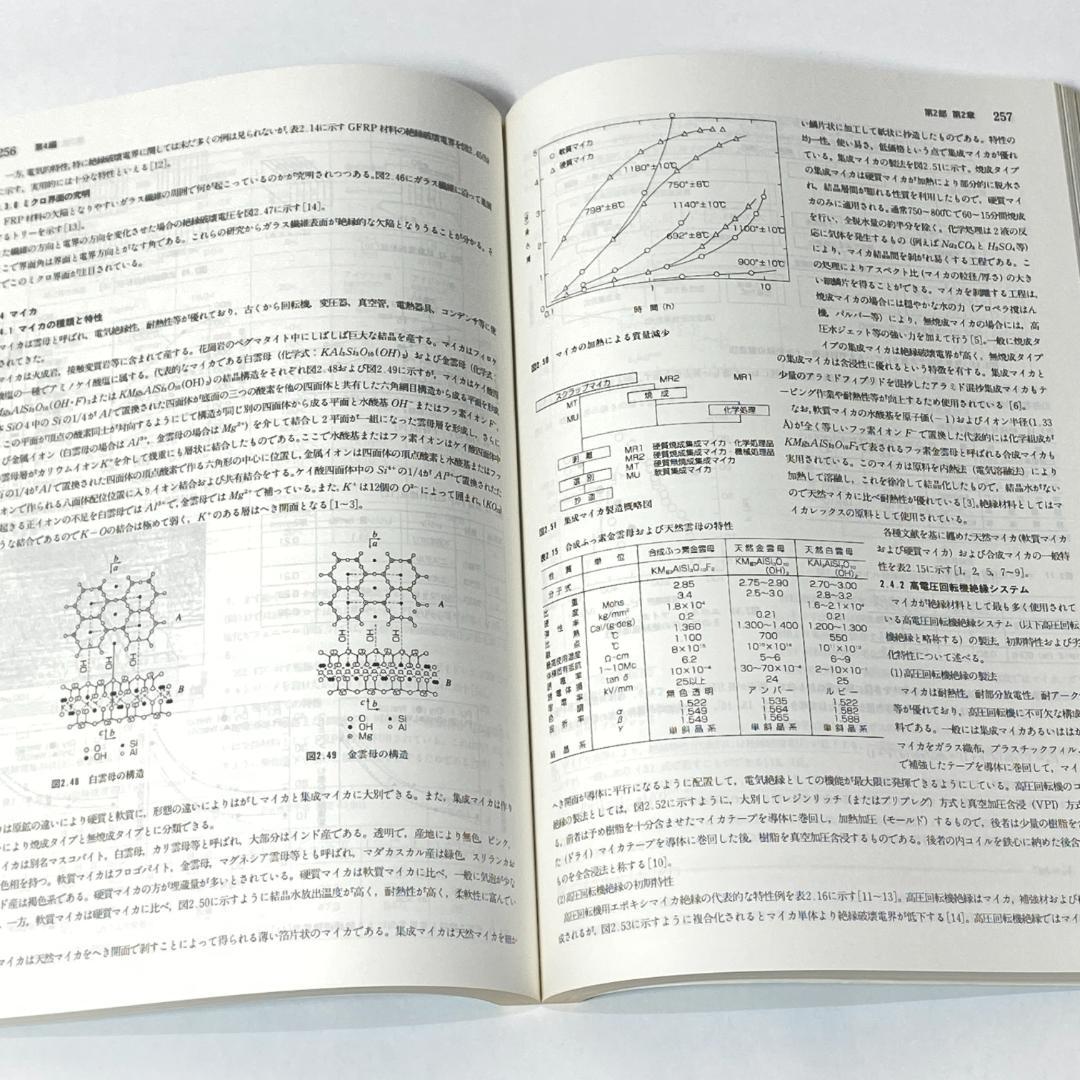 256 第4編
一方、電気的特性、特に絶縁破壊電界に関しては未だ多くの例は見られないが、表2.14に示すGFRP材料の絶縁破壊電界を図2.45
に示す。実用的には十分な特性といえる[12]。
ミクロ界面の究明
FRP材料の欠陥となりやすいガラス繊維の周囲で何が起こっているのかが究明されつつある。図2.46にガラス繊維に沿って進展
するトリーを示す[13]。
た繊維の方向と電界の方向を変化させた場合の絶縁破壊電圧を図2.47に示す[14]。
こで界面角は界面と電界方向とがなす角である。これらの研究からガラス繊維表面が絶縁的な欠陥となりうることが分かる。そ
でこのミクロ界面が注目されている。
4 マイカ
4.1 マイカの種類と特性
マイカは雲母と呼ばれ、電気絶縁性、耐熱性等が優れており、古くから回転機、変圧器、真空管、電熱器具、コンデンサ等に使
されてきた。
マイカは火成岩、接触変質岩等に含まれて産する。花崗岩のペグマタイト中にしばしば巨大な結晶を産する。マイカはフィロケ
酸塩の一種でアミノケイ酸塩に属する。代表的なマイカである白雲母（化学式：KAl₂Si₃O₁₀(OH)₂）および金雲母（化学式：
の結晶構造をそれぞれ図2.48および図2.49に示すが、マイカはケイ酸四
SiO4中のSiの1/4がAlで置換された四面体が底面の三つの酸素を他の四面体と共有した六角網目構造から成る平面を形成
この平面が頂点の酸素同士が対向するようにして構造が同じ別の四面体から成る平面と水酸基OH⁻またはフッ素イオンF⁻、
び金属イオン（白雲母の場合はAl³⁺、金雲母の場合はMg²⁺）を介して結合し2平面が一組になった雲母層を形成し、さらに
雲母層がカリウムイオンK⁺を介して幾重にも層状に結合したものである。ここで水酸基またはフッ素イオンはケイ酸四面体中
の1/4がAlで置換された四面体の頂点酸素で作る六角形の中心に位置し、金属イオンは四面体の頂点酸素と水酸基またはフッ
オンで作られる八面体配位位置に入りイオン結合および共有結合をする。ケイ酸四面体中のSi⁴⁺の1/4がAl³⁺で置換された
起きる正イオンの不足を白雲母ではAl³⁺で、金雲母ではMg²⁺で補っている。また、K⁺は12個のO²⁻によって囲まれ、
うな結合であるのでK−Oの結合は極めて弱く、K⁺のある層はへき開面となる[1〜3]。
b
a
A
OH
OH
B
c b
○ O
● OH
• Si
○ Al
図2.48 白雲母の構造
b
a
A
OH
OH
B
c b
○ O
● OH
● Mg
• Si
○ Al
図2.49 金雲母の構造
は原鉱の違いにより硬質と軟質に、形態の違いによりはがしマイカと集成マイカに大別できる。また、集成マイカは作り
により焼成タイプと無焼成タイプとに分類できる。
イカは別名マスコバイト、白雲母、カリ雲母等と呼ばれ、大部分はインド産である。透明で、産地により無色、ピンク、
色相を持つ。軟質マイカはフロゴパイト、金雲母、マグネシア雲母等とも呼ばれ、マダカスカル産は緑色、スリランカお
ド産は褐色系である。硬質マイカの方が埋蔵量が多いとされている。硬質マイカは軟質マイカに比べ、一般に気泡が少な
、一方、軟質マイカは硬質マイカに比べ、図2.50に示すように結晶水放出温度が高く、耐熱性が高く、柔軟性に富んでい
マイカは天然マイカをへき開面で剥すことによって得られる薄い箔片状のマイカである。集成マイカは天然マイカを細か
第2部 第2章 257
○ 軟質マイカ
△ 硬質マイカ
1180°±10℃
750°±8℃
798°±8℃
1140°±10℃
692°±8℃
1100°±10℃
900°±10℃
5
4
3
2
1
0
0.1
1
10
時 間 (h)
図2.50 マイカの加熱による質量減少
スクラップマイカ
MT
MU
MR2
MR1
焼 成
化学処理
剥 離
選 別
抄 造
MR1 硬質焼成集成マイカ・化学処理品
MR2 硬質焼成集成マイカ・機械処理品
MT 硬質無焼成集成マイカ
MU 軟質集成マイカ
図2.51 集成マイカ製造概略図
表2.15 合成ふっ素金雲母および天然雲母の特性
性 質 単 位 合成ふっ素金雲母 天然金雲母 天然白雲母
分 子 式 KMg₃AlSi₃O₁₀F₂ KMg₃AlSi₃O₁₀(OH)₂ KAl₃AlSi₃O₁₀(OH)₂
比 重 2.85 2.75〜2.90 2.70〜3.00
硬 度 Mohs 3.4 2.5〜3.0 2.8〜3.2
弾 性 率 kg/mm² 1.8×10⁴ 1.6〜2.1×10⁴
比 熱 Cal/(g·deg) 0.2 0.21 0.21
融 点 ℃ 1.360 1.300〜1.400 1.200〜1.300
最高使用温度 ℃ 1.100 700 550
体積固有抵抗 Ω·cm 8×10¹⁵
誘 電 率 1〜10Mc 6.2 5〜6 6〜9
tan δ 10×10⁻⁴ 30〜70×10⁻⁴ 2〜10×10⁻⁴
kV/mm 25以上 24 25
色 調 無色透明 アンバー ルビー
屈 折 率 α 1.522 1.535 1.522
β 1.549 1.564 1.582
γ 1.549 1.565 1.588
結 晶 系 単 斜 晶 系 単 斜 晶 系 単 斜 晶 系
い鱗片状に加工して紙状に抄造したものである。特性の
均一性、使い易さ、低価格という点で集成マイカが優れ
ている。集成マイカの製法を図2.51に示す。焼成タイプ
の集成マイカは硬質マイカが加熱により部分的に脱水さ
れ、結晶層間が膨れる性質を利用したもので、硬質マイ
カのみに適用される。通常750〜800℃で60〜15分間焼成
を行い、全脱水量の約半分を除く。化学処理は2液の反
応に気体を発生するもの（例えばNa₂CO₃とH₂SO₄等）
により、マイカ結晶間を剥がれ易くする工程である。こ
の処理によりアスペクト比（マイカの粒径/厚さ）の大き
い鱗片を得ることができる。マイカを剥離する工程は、
焼成マイカの場合には穏やかな水の力（プロペラ撹はん
機、パルパー等）により、無焼成マイカの場合には、高
圧水ジェット等の強い力を加えて行う[5]。一般に焼成タ
イプの集成マイカは絶縁破壊電界が高く、無焼成タイプ
の集成マイカは含浸性に優れるという特徴を有する。集成マイカと
少量のアラミドフィブリドを混抄したアラミド混抄集成マイカもテ
ーピング作業や耐熱性等が向上するため使用されている [6]。
なお、軟質マイカの水酸基を原子価（−1）およびイオン半径（1.33
A）が全く等しいフッ素イオンF⁻で置換した代表的には化学組成が
KMg₃AlSi₃O₁₀F₂で表されるフッ素金雲母と呼ばれる合成マイカも
実用されている。このマイカは原料を内熱法（電気溶融法）により
加熱して溶融し、これを徐冷して結晶化したもので、結晶水がない
ので天然マイカに比べ耐熱性が優れている[3]。絶縁材料としてはマ
イカレックスの原料として使用されている。
各種文献を基に纏めた天然マイカ（軟質マイカ
および硬質マイカ）および合成マイカの一般特
性を表2.15に示す[1、2、5、7〜9]。
2.4.2 高電圧回転機絶縁システム
マイカが絶縁材料として最も多く使用されて
いる高電圧回転機絶縁システム（以下高圧回転
機絶縁と略称する）の製法、初期特性および劣
化特性について述べる。
(1)高圧回転機絶縁の製法
マイカは耐熱性、耐部分放電性、耐アーク
等が優れており、高圧回転機に不可欠な構造
料である。一般には集成マイカあるいははが
マイカをガラス織布、プラスチックフィル
で補強したテープを導体に巻回して、マイ
へき開面が導体に平行になるように配置して、電気絶縁としての機能が最大限に発揮できるようにしている。高圧回転機のコ
絶縁の製法としては、図2.52に示すように、大別してレジンリッチ（またはプリプレグ）方式と真空加圧含浸（VPI）方式
、前者は予め樹脂を十分含ませたマイカテープを導体に巻回し、加熱加圧（モールド）するもので、後者は少量の樹脂を含
た（ドライ）マイカテープを導体に巻回した後、樹脂を真空加圧含浸するものである。後者の内コイルを鉄心に納めた後含
ものを全含浸法と称する[10]。
(2)高圧回転機絶縁の初期特性
高圧回転機用エポキシマイカ絶縁の代表的な特性例を表2.16に示す[11〜13]。高圧回転機絶縁はマイカ、補強材および
成されるが、図2.53に示すように複合化されるとマイカ単体より絶縁破壊電界が低下する[14]。高圧回転機絶縁ではマイ